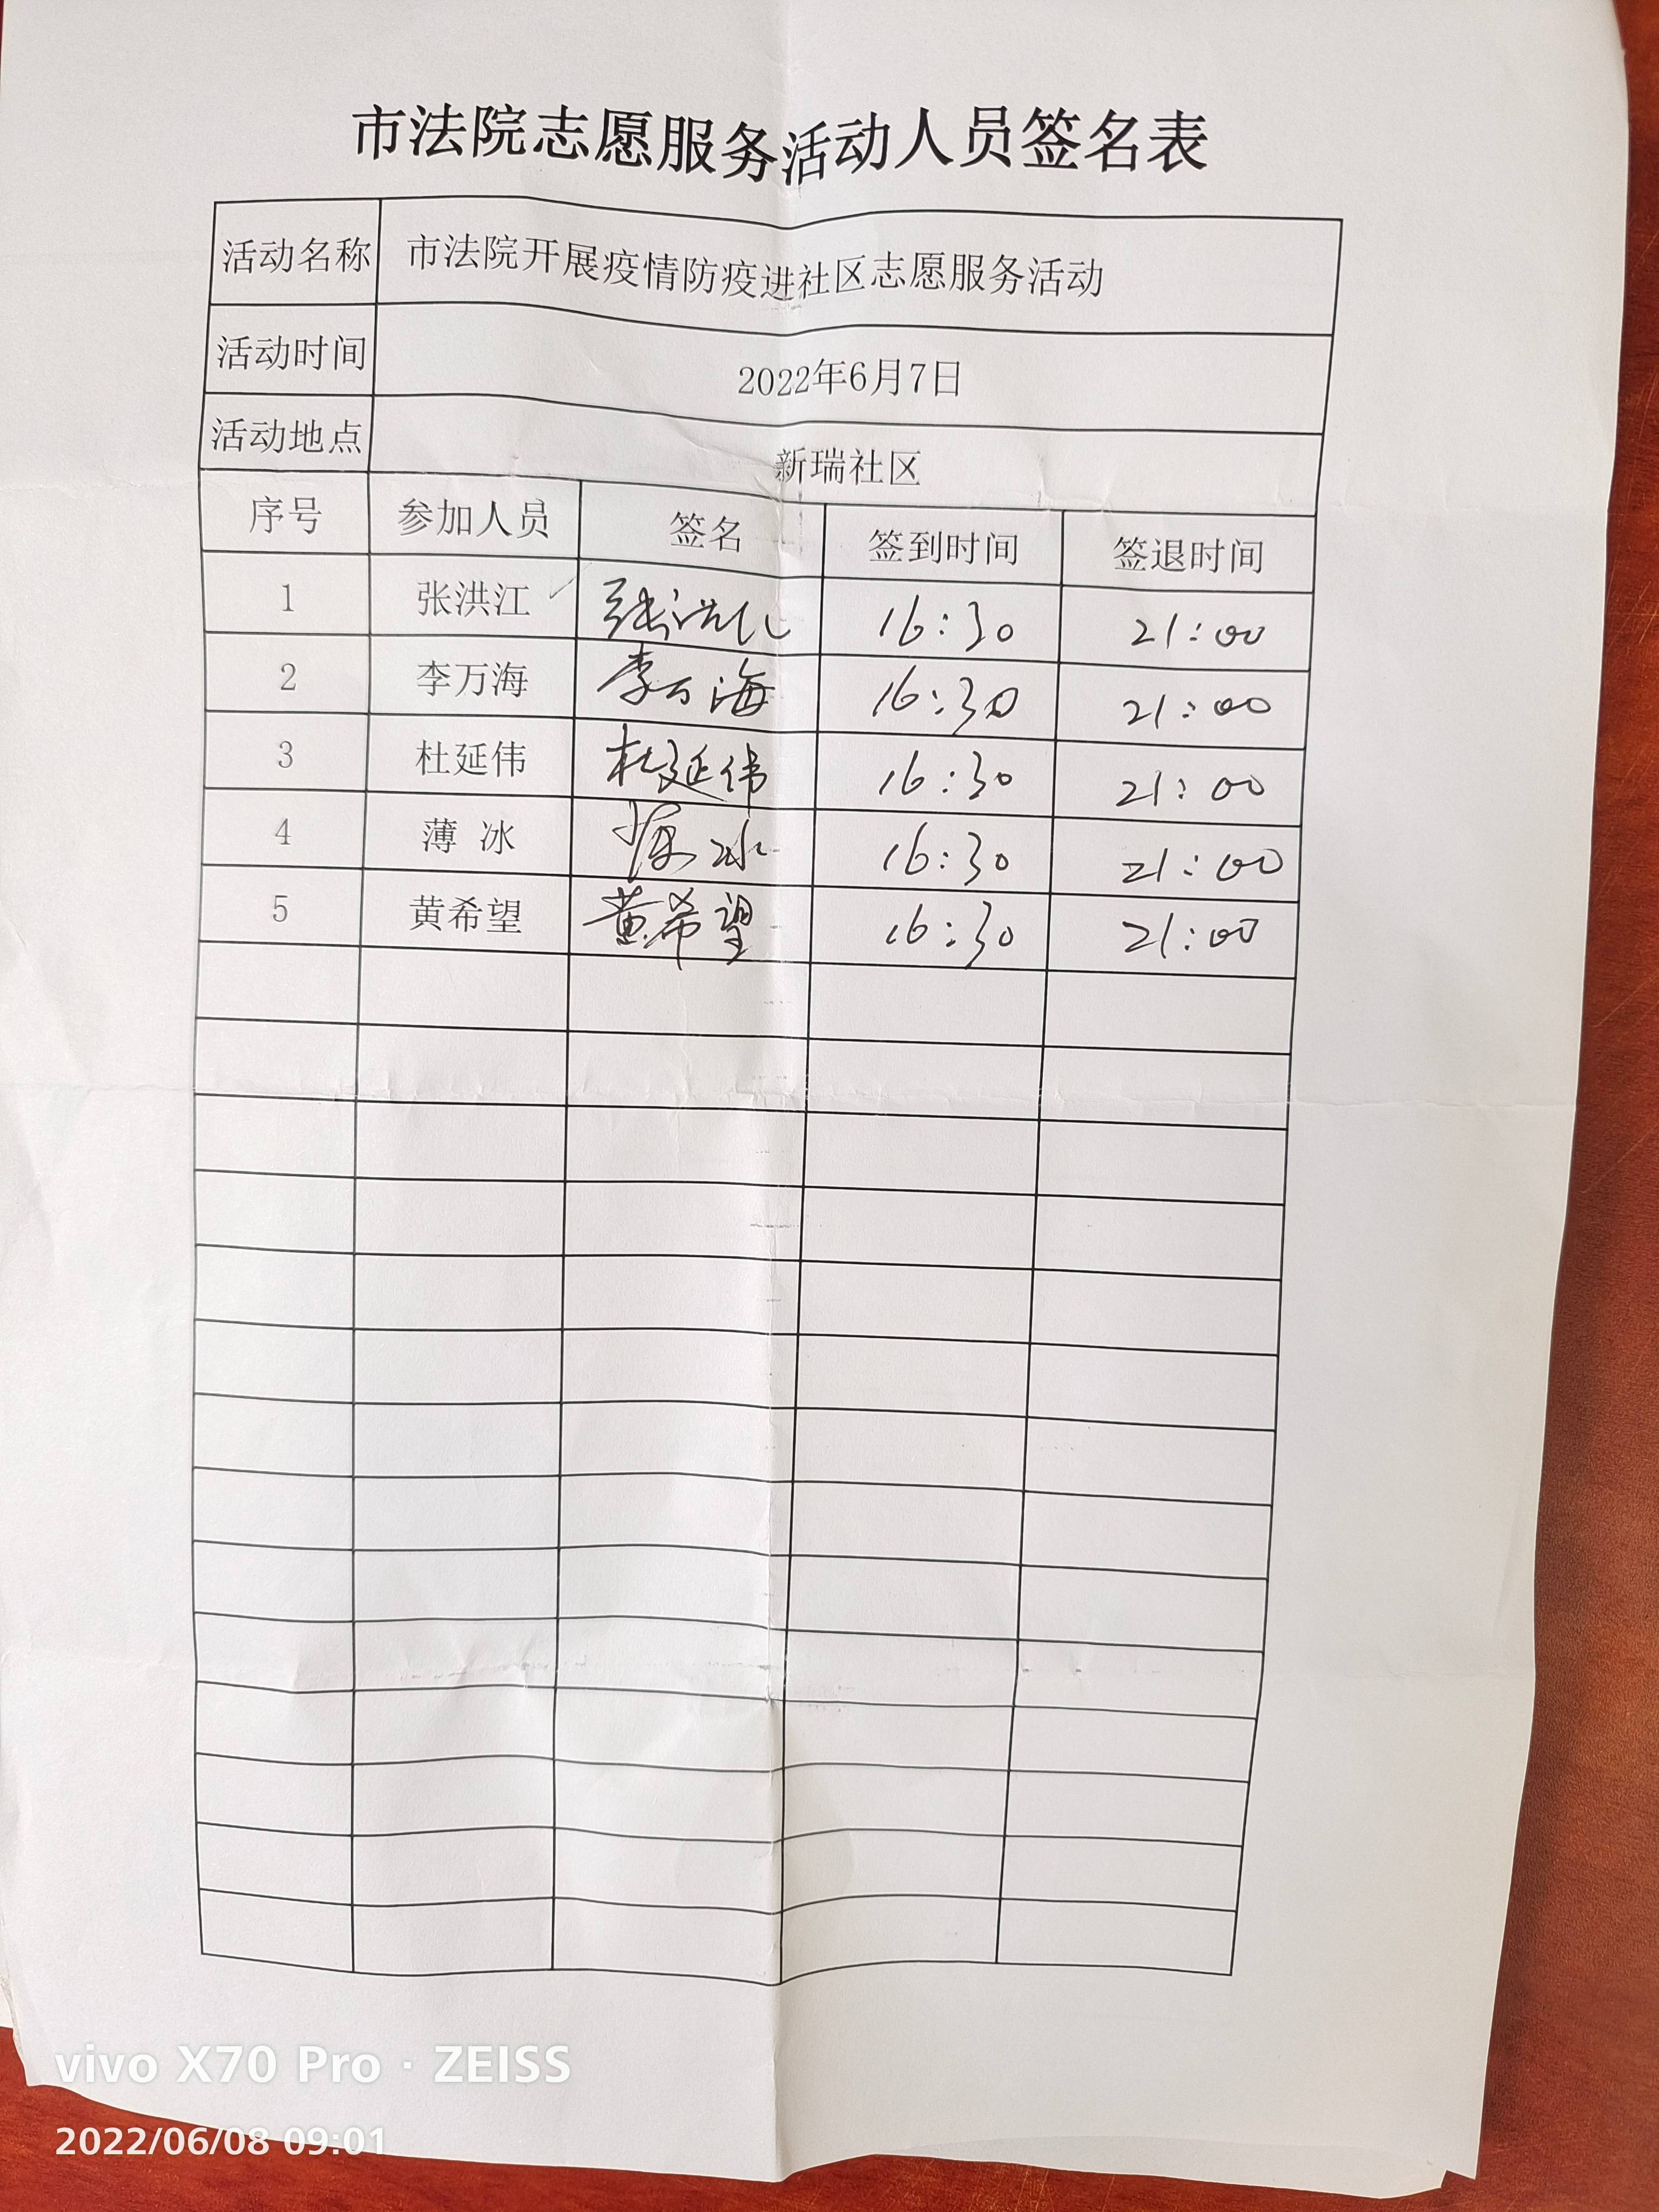 市法院志愿服务活动人员签名表
活动名称 市法院开展疫情防疫进社区志愿服务活动
活动时间 2022年6月7日
活动地点 新瑞社区
序号 参加人员 签名 签到时间 签退时间
1 张洪江 张洪江 16:30 21:00
2 李万海 李万海 16:30 21:00
3 杜延伟 杜延伟 16:30 21:00
4 薄 冰 薄冰 16:30 21:00
5 黄希望 黄希望 16:30 21:00
vivo X70 Pro · ZEISS
2022/06/08 09:01